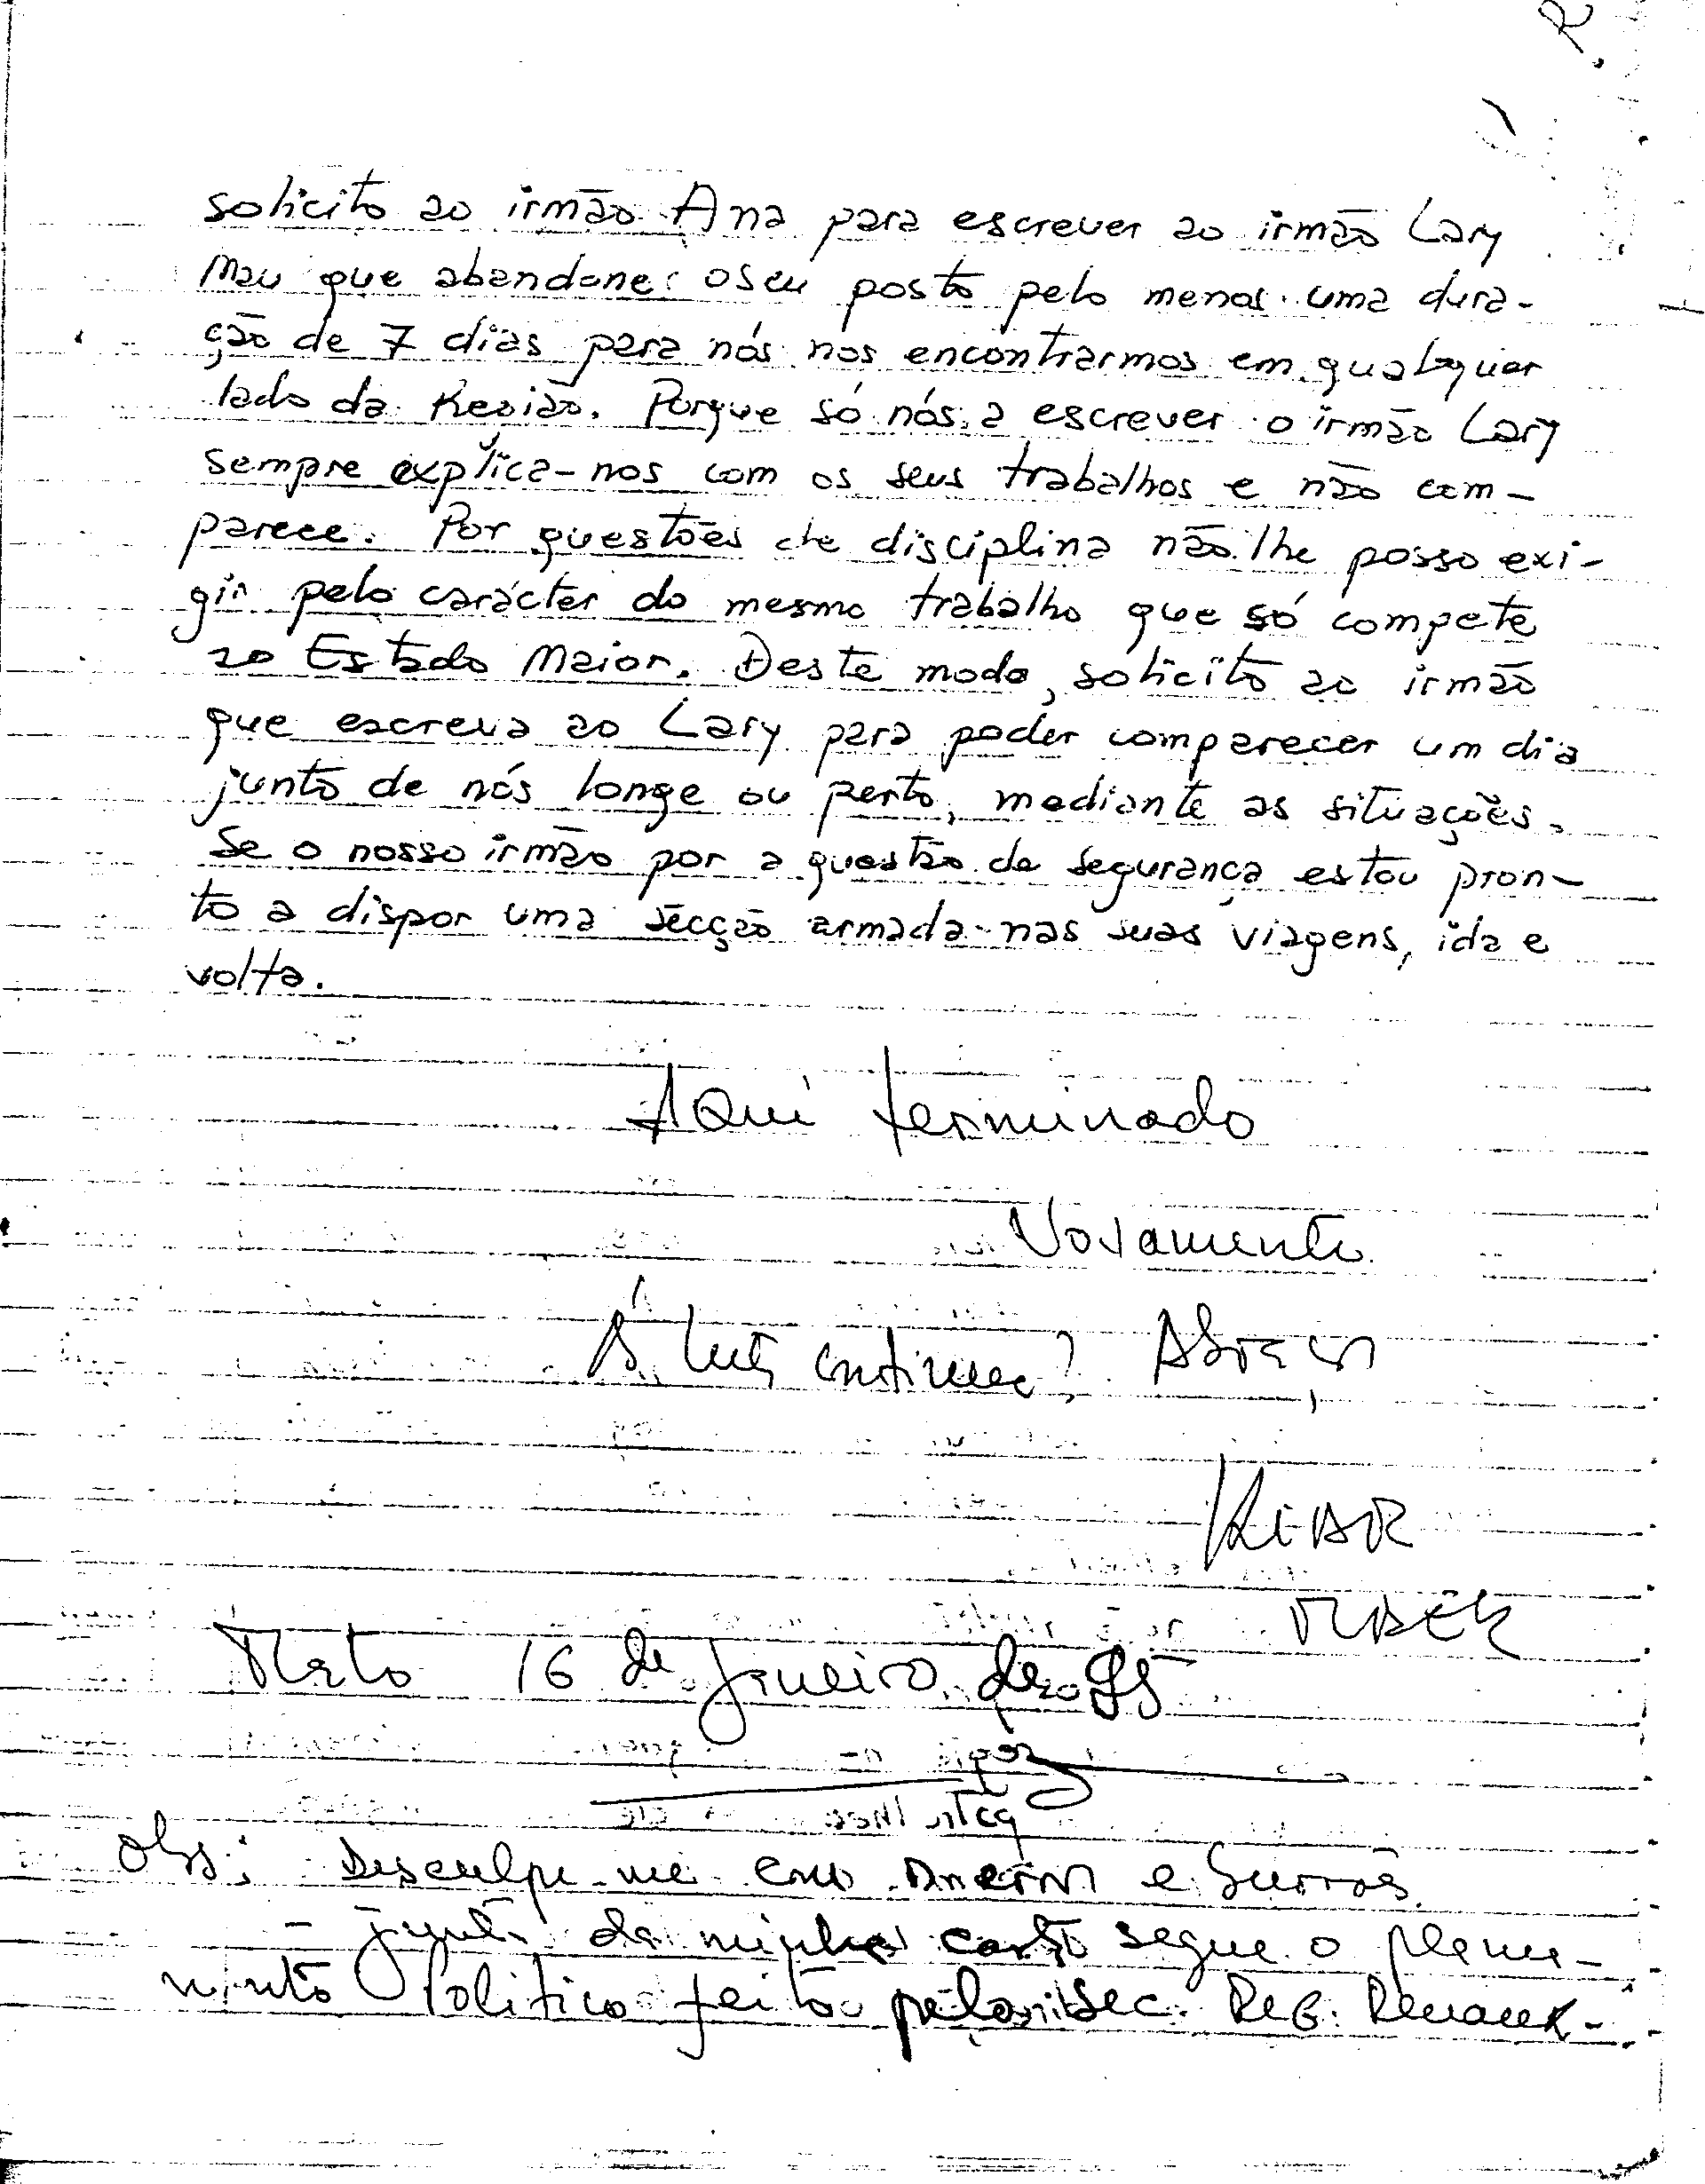 solicito ao irmão Ana para escrever ao irmão Lary
Mau que abandone o seu posto pelo menos uma dura-
ção de 7 dias para nós nos encontrarmos em qualquer
lado da Região. Porque só nós a escrever o irmão Lary
sempre explica-nos com os seus trabalhos e não com-
parece. Por questões de disciplina não lhe posso exi-
gir pelo carácter do mesmo trabalho que só compete
ao Estado Maior. Deste modo, solicito ao irmão
que escreva ao Lary para poder comparecer um dia
junto de nós longe ou perto, mediante as situações.
Se o nosso irmão por a questão de segurança estou pron-
to a dispor uma secção armada nas suas viagens, ida e
volta.
Aqui terminado
Vossamente
A luta continua! Abraços
Mato 16 de Janeiro de 95
Obs: Desculpe-me com and e burrões
- junto da minha carta segue o plana-
mento Politico feito pelo sec. Reg.